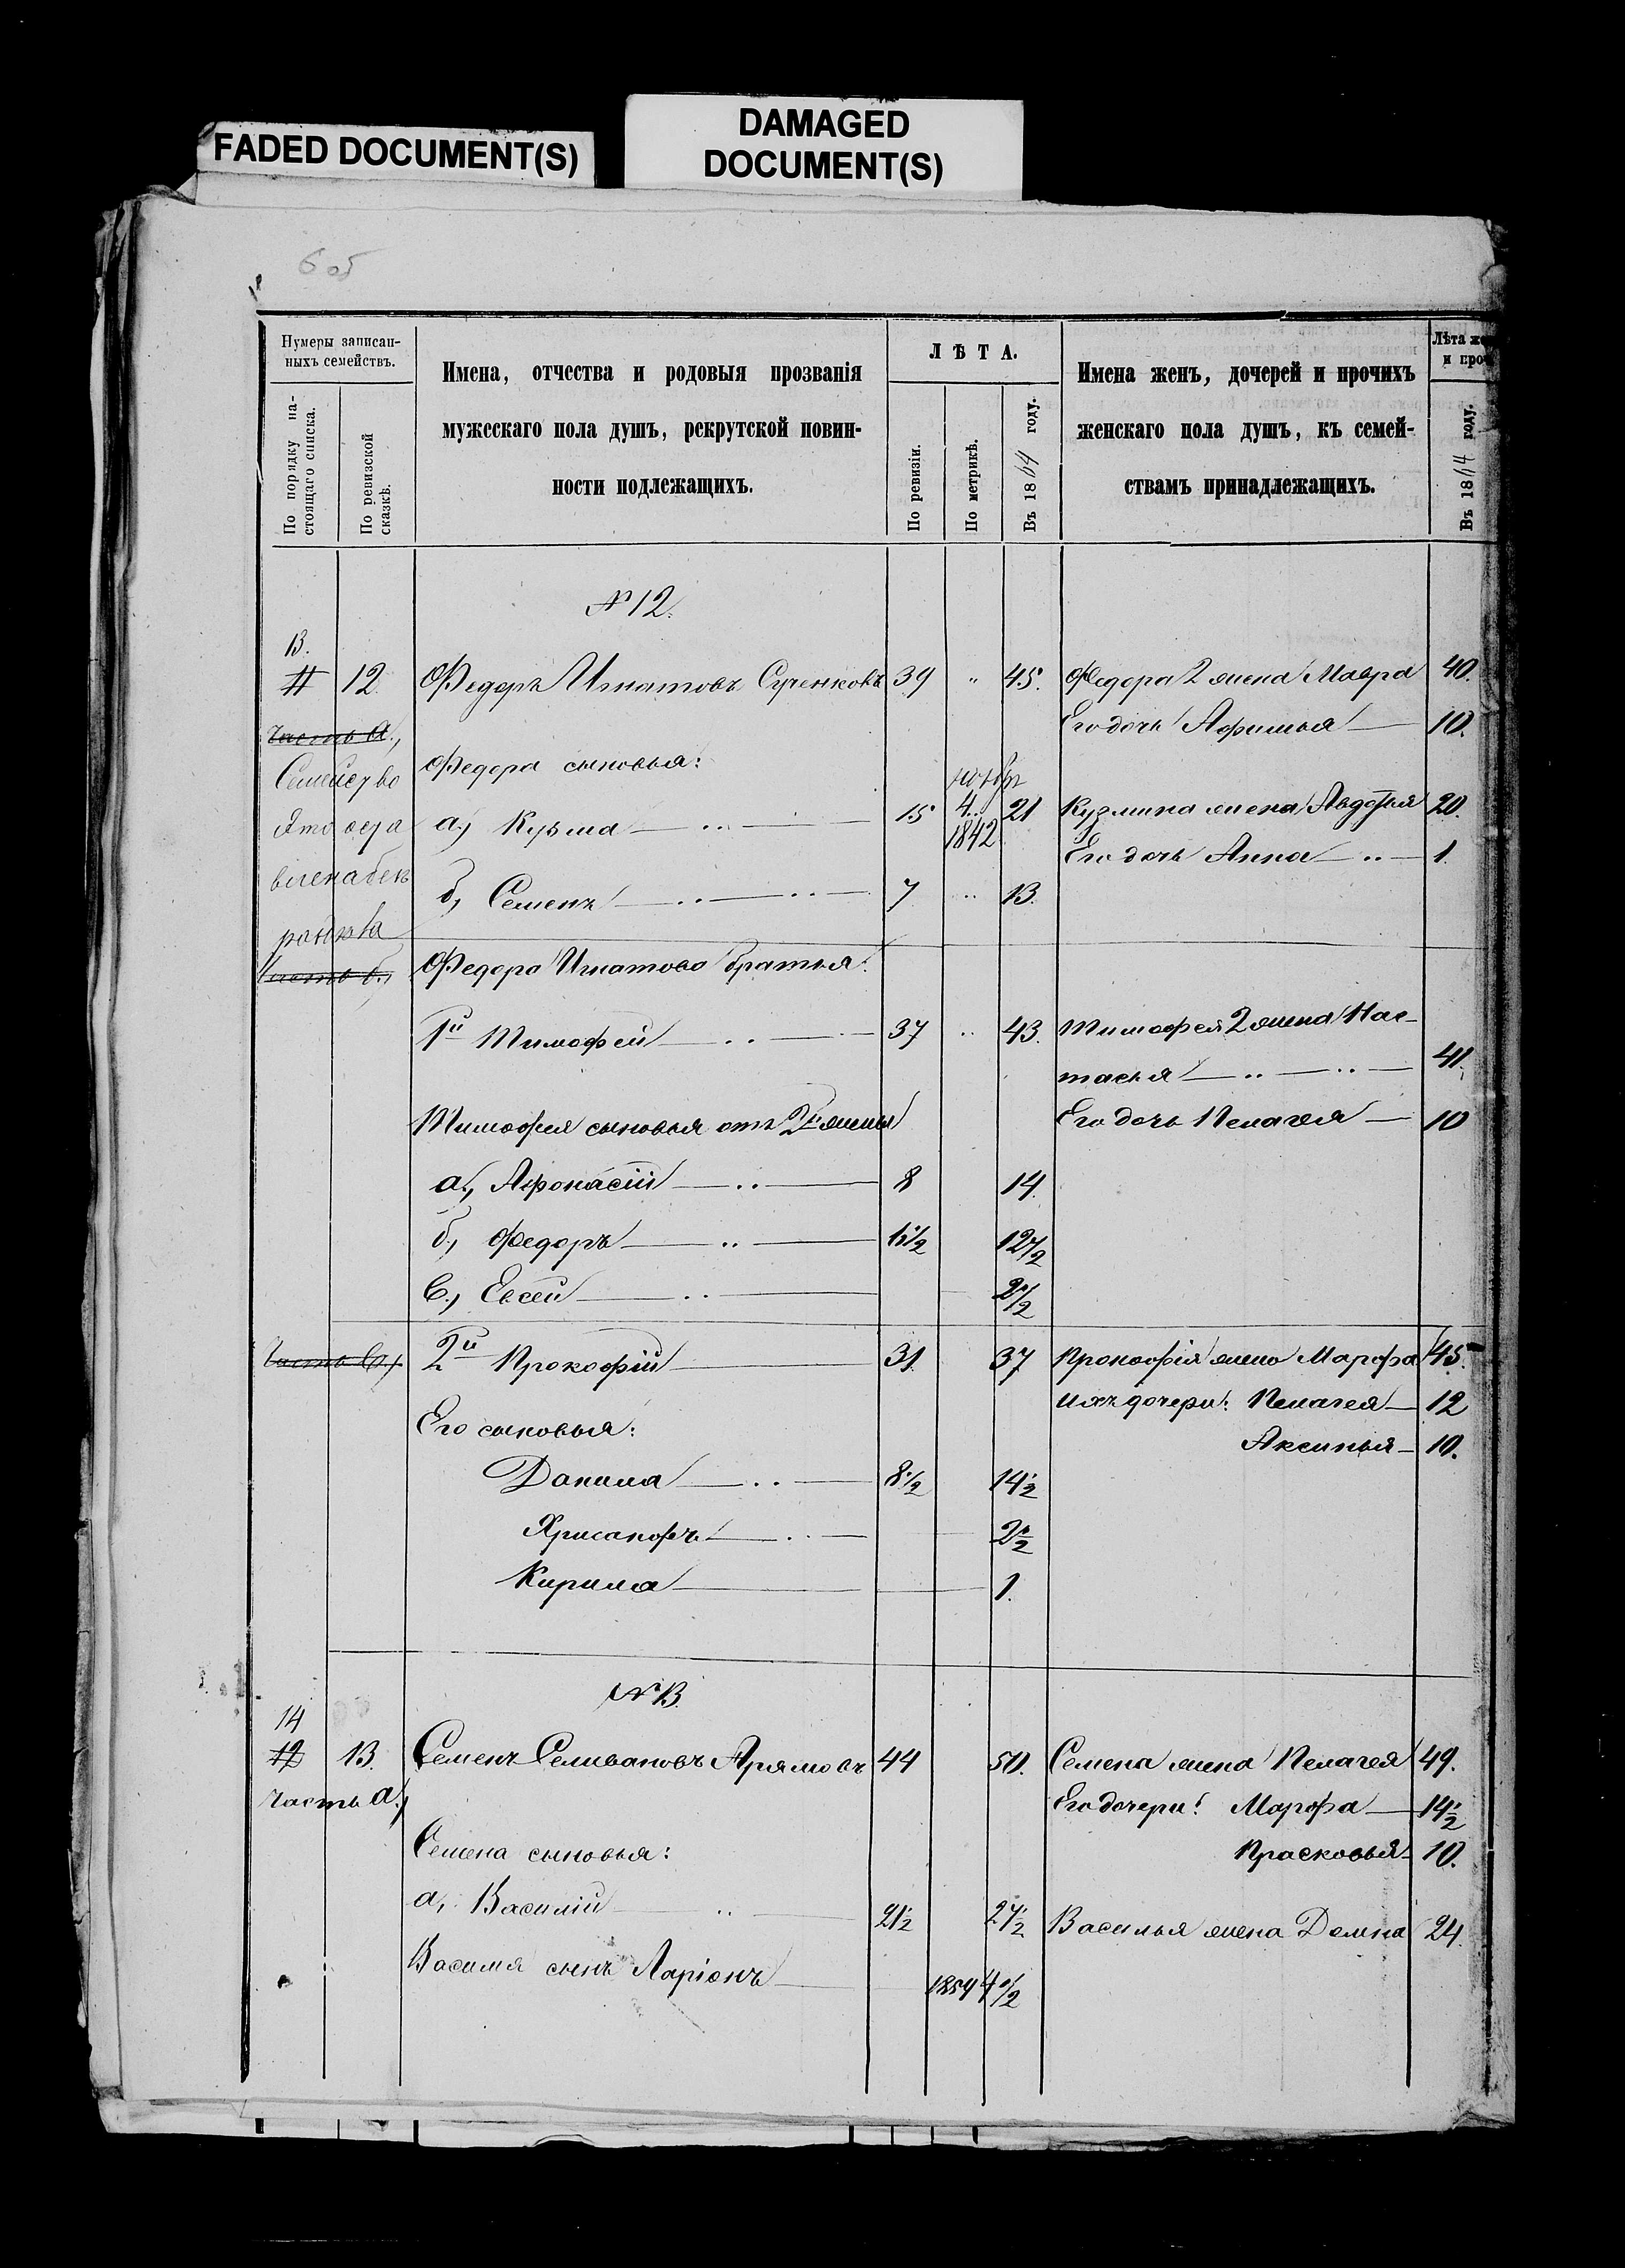 FADED DOCUMENT(S)
DAMAGED
DOCUMENT(S)
6 об
Нумеры записан-
ныхъ семействъ.
По порядку на-
стоящаго списка.
По ревизской
сказкѣ.
Имена, отчества и родовыя прозванія
мужескаго пола душъ, рекрутской повин-
ности подлежащихъ.
ЛѢТА.
По ревизіи.
По метрикѣ.
Въ 1864 году.
Имена женъ, дочерей и прочихъ
женскаго пола душъ, къ семей-
ствамъ принадлежащихъ.
Лѣта же
и проч
Въ 1864 году.
№ 12.
13.
11 12 Федоръ Игнатовъ Сученковъ 39 " 45. Федора 2 жена Мавра 40.
Часть а., Его дочь Афимья 10.
Семейство Федора сыновья:
ноябр
это оста а.) Кузьма 15 4 21 Кузмина жена Авдотья 20.
1842
Его дочь Анна 1.
б, Семенъ 7 13.
Часть б., Федора Игнатова братья:
1й Тимофей 37 43. Тимофея 2 жена Нас-
тасья 41.
Тимофея сыновья отъ 2й жены Его дочь Пелагея 10
а., Афонасій 8 14.
б., Федоръ 6 1/2 12 1/2
в., Евсей 2 1/2
Часть в.) 2й Прокофій 31. 37 Прокофія жена Марфа 45.
ихъ дочери: Пелагея 12
Его сыновья: Аксинья 10.
Данила 8 1/2 14 1/2
Хрисанфъ 2 1/2
Кирила 1.
№ 13.
14
12 13. Семенъ Селивановъ Арямовъ 44 50. Семена жена Пелагея 49.
Часть а.) Его дочери: Марфа 14 1/2
Семена сыновья: Прасковья 10.
а, Василій 21 1/2 27 1/2 Василья жена Домна 24.
Василя сынъ Ларіонъ 1859 4 1/2